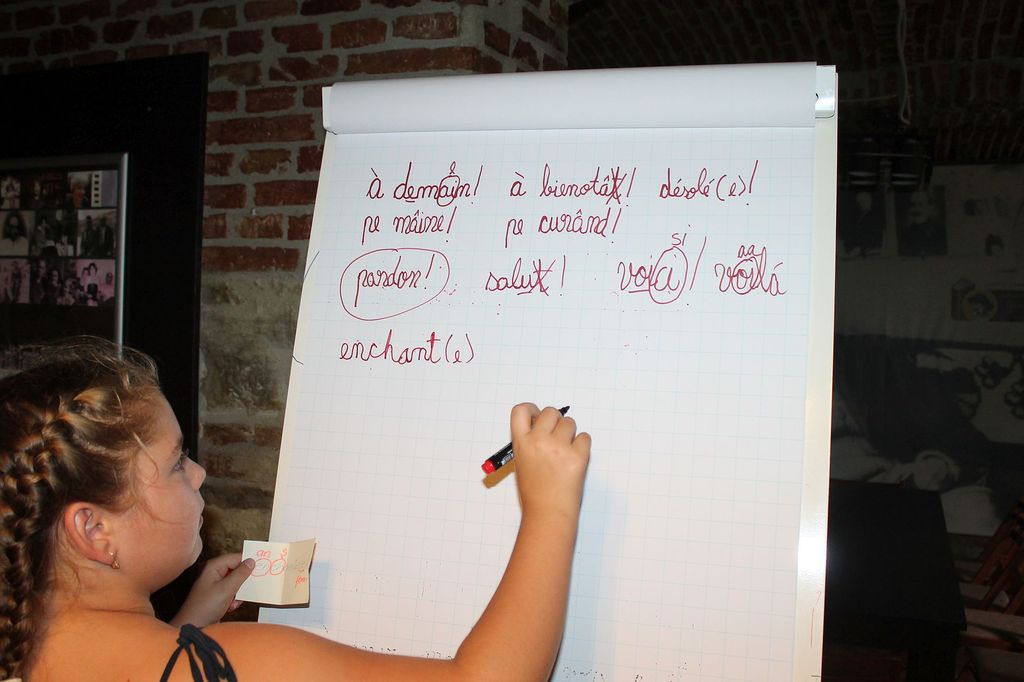 à demain! à bientotât! désolé(e)!
ĕ
pe mâine! pe curând!
pardon! salut! voici / voilá
si aa
enchant(e)
an